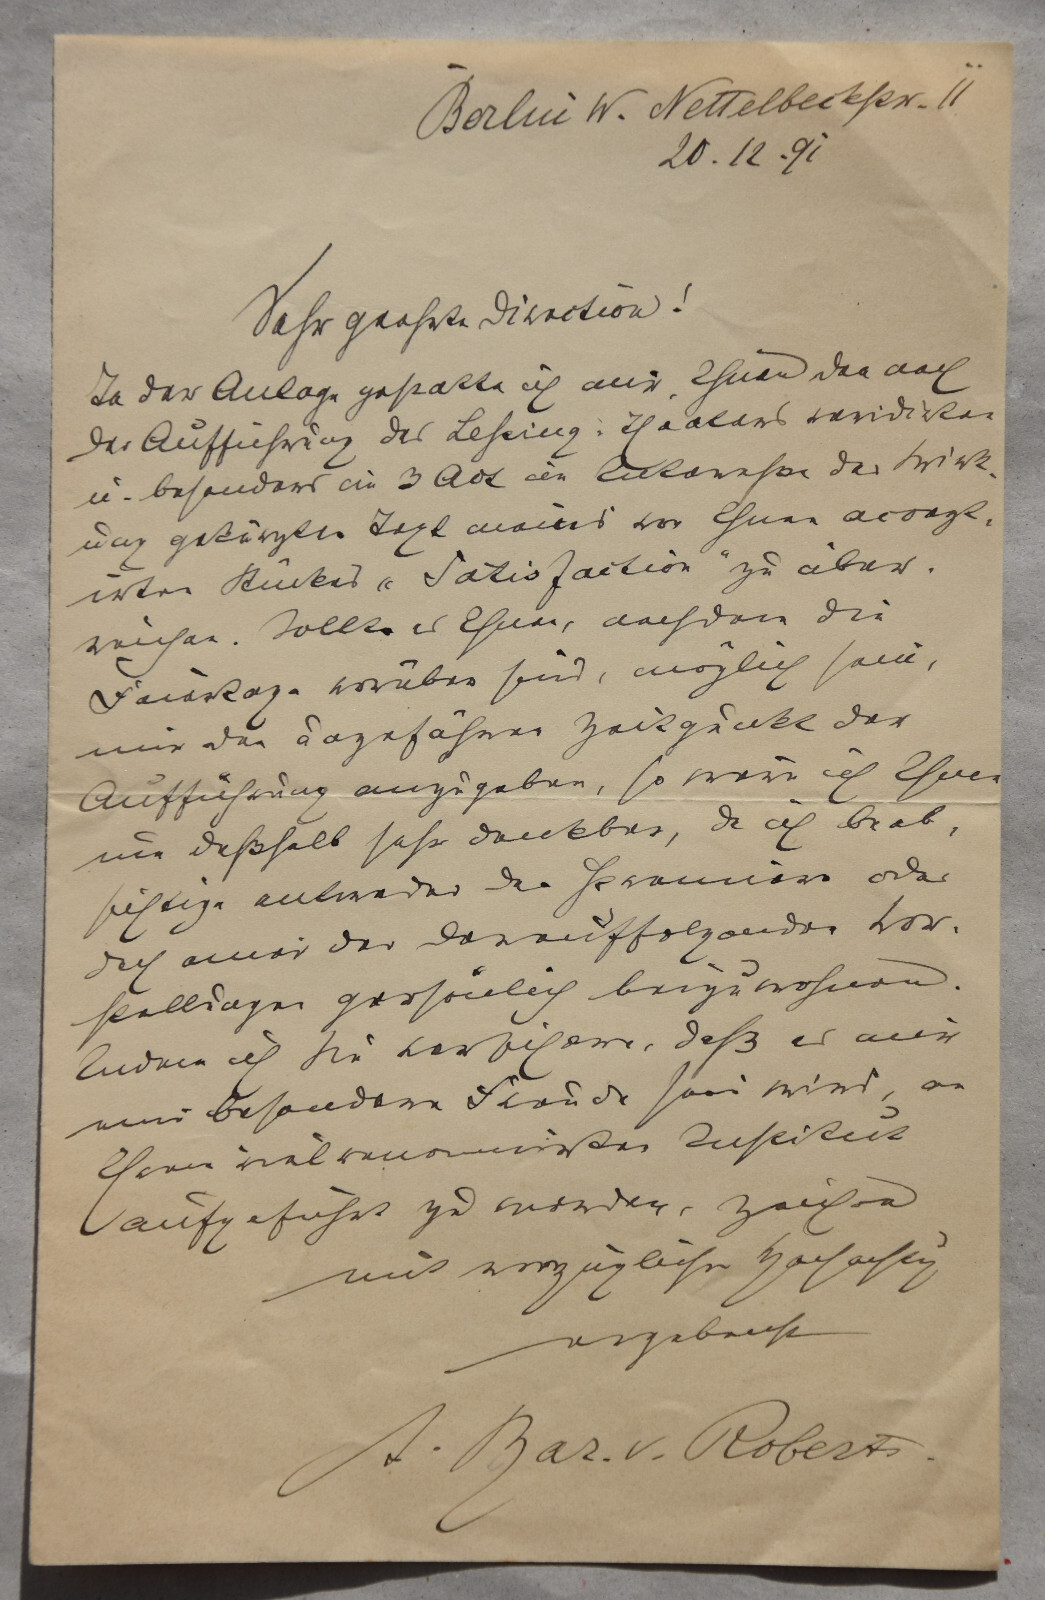 Berlin W. Nettelbeckstr. 11
20.12.91
Sehr geehrte Direction!
In der Anlage gestatte ich mir, Ihnen den nach
der Aufführung des Lessing-Theaters revidirten
u. besonders im 3 Act im Interesse der Wirk-
ung gekürzten Text meines von Ihnen accept-
irten Stückes „Satisfaction" zu über-
reichen. Sollte es Ihnen, nachdem die
Feiertage vorüber sind, möglich sein,
mir den ungefähren Zeitpunkt der
Aufführung anzugeben, so wäre ich Ihnen
nur deßhalb sehr dankbar, da ich beab-
sichtige entweder der Premiere oder
doch einer der darauffolgenden Vor-
stellungen persönlich beizuwohnen.
Indem ich Sie versichere, daß es mir
eine besondere Freude sein wird, an
Ihrem vielrenommirten Institut
aufgeführt zu werden, zeichne
mit vorzüglicher Hochachtg
ergebenst
A. Bar. v. Roberts.